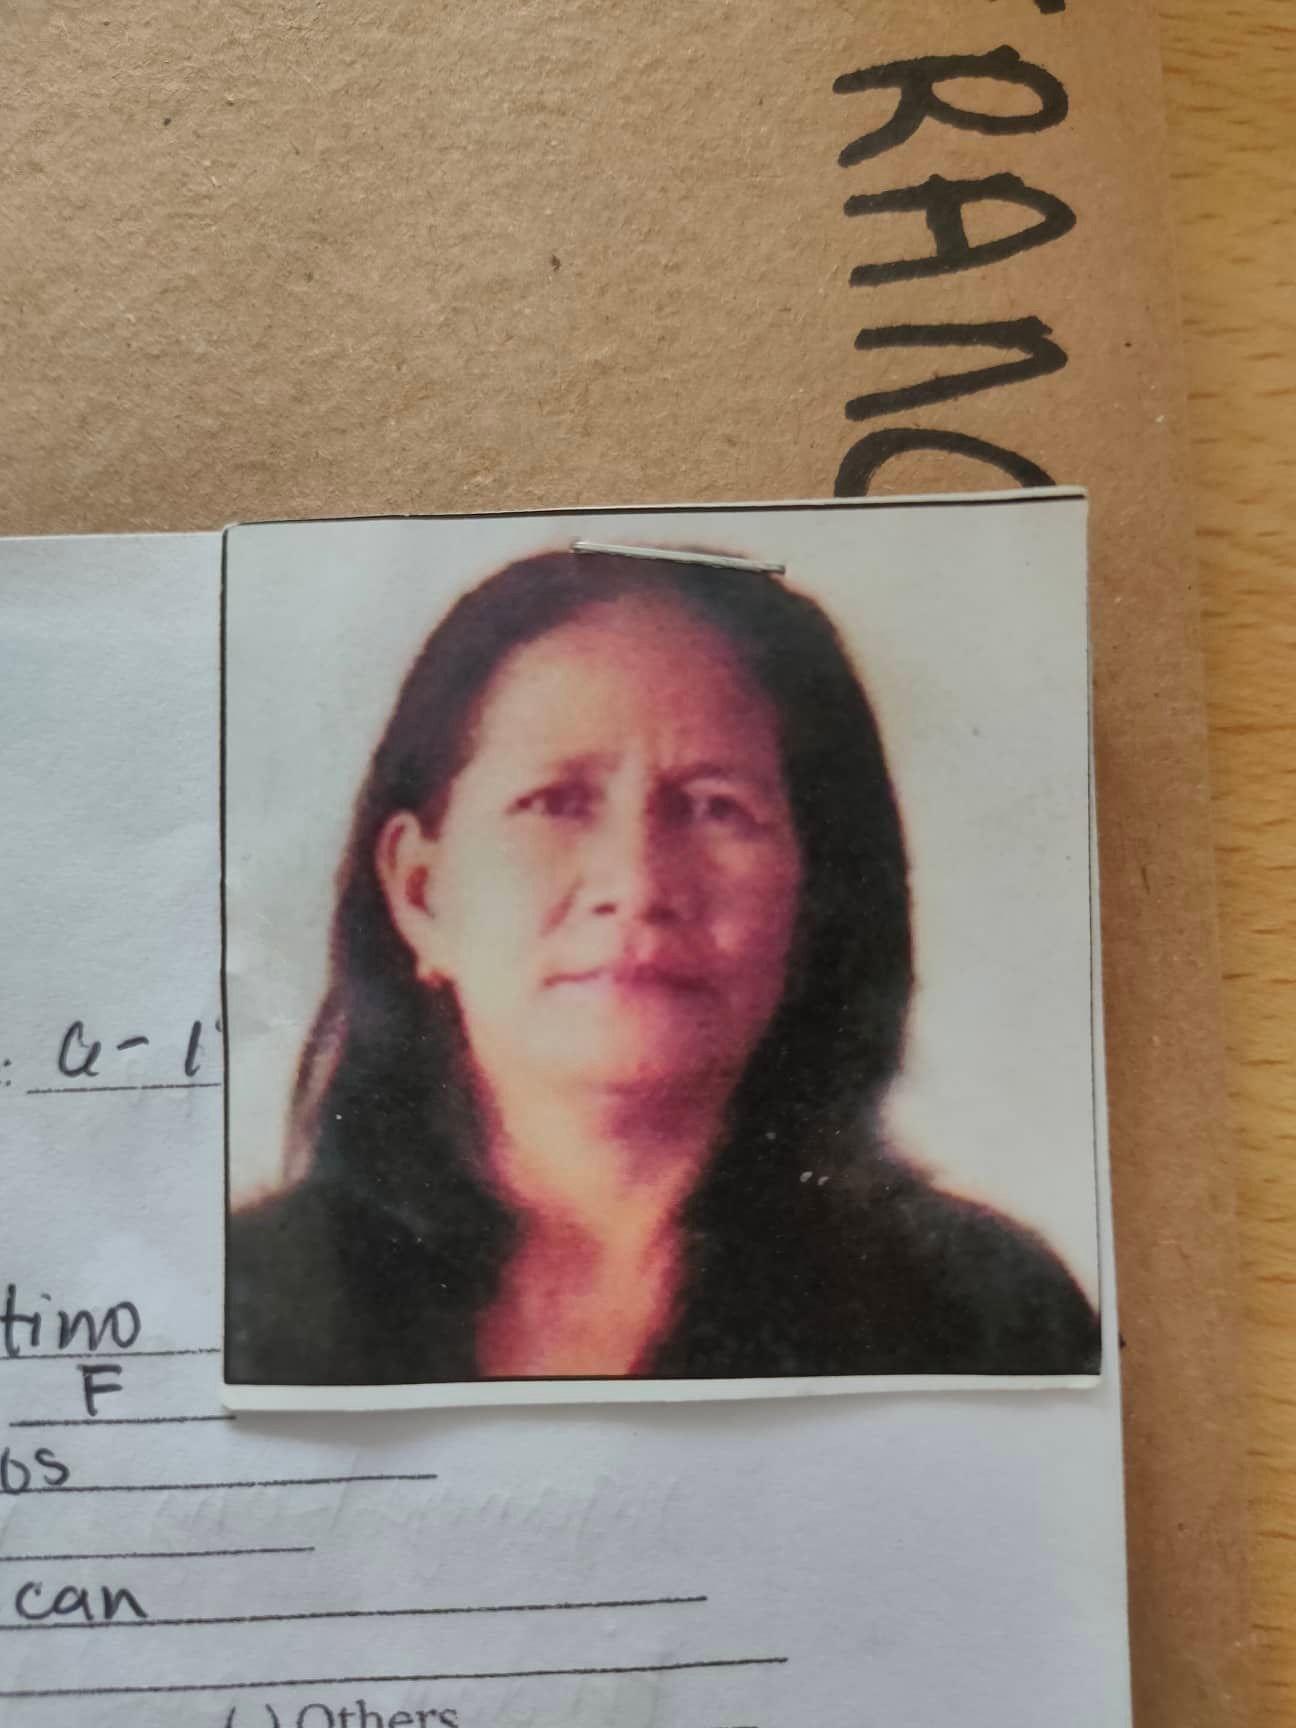 RAN
: G-1
tino
F
os
can
( ) Others